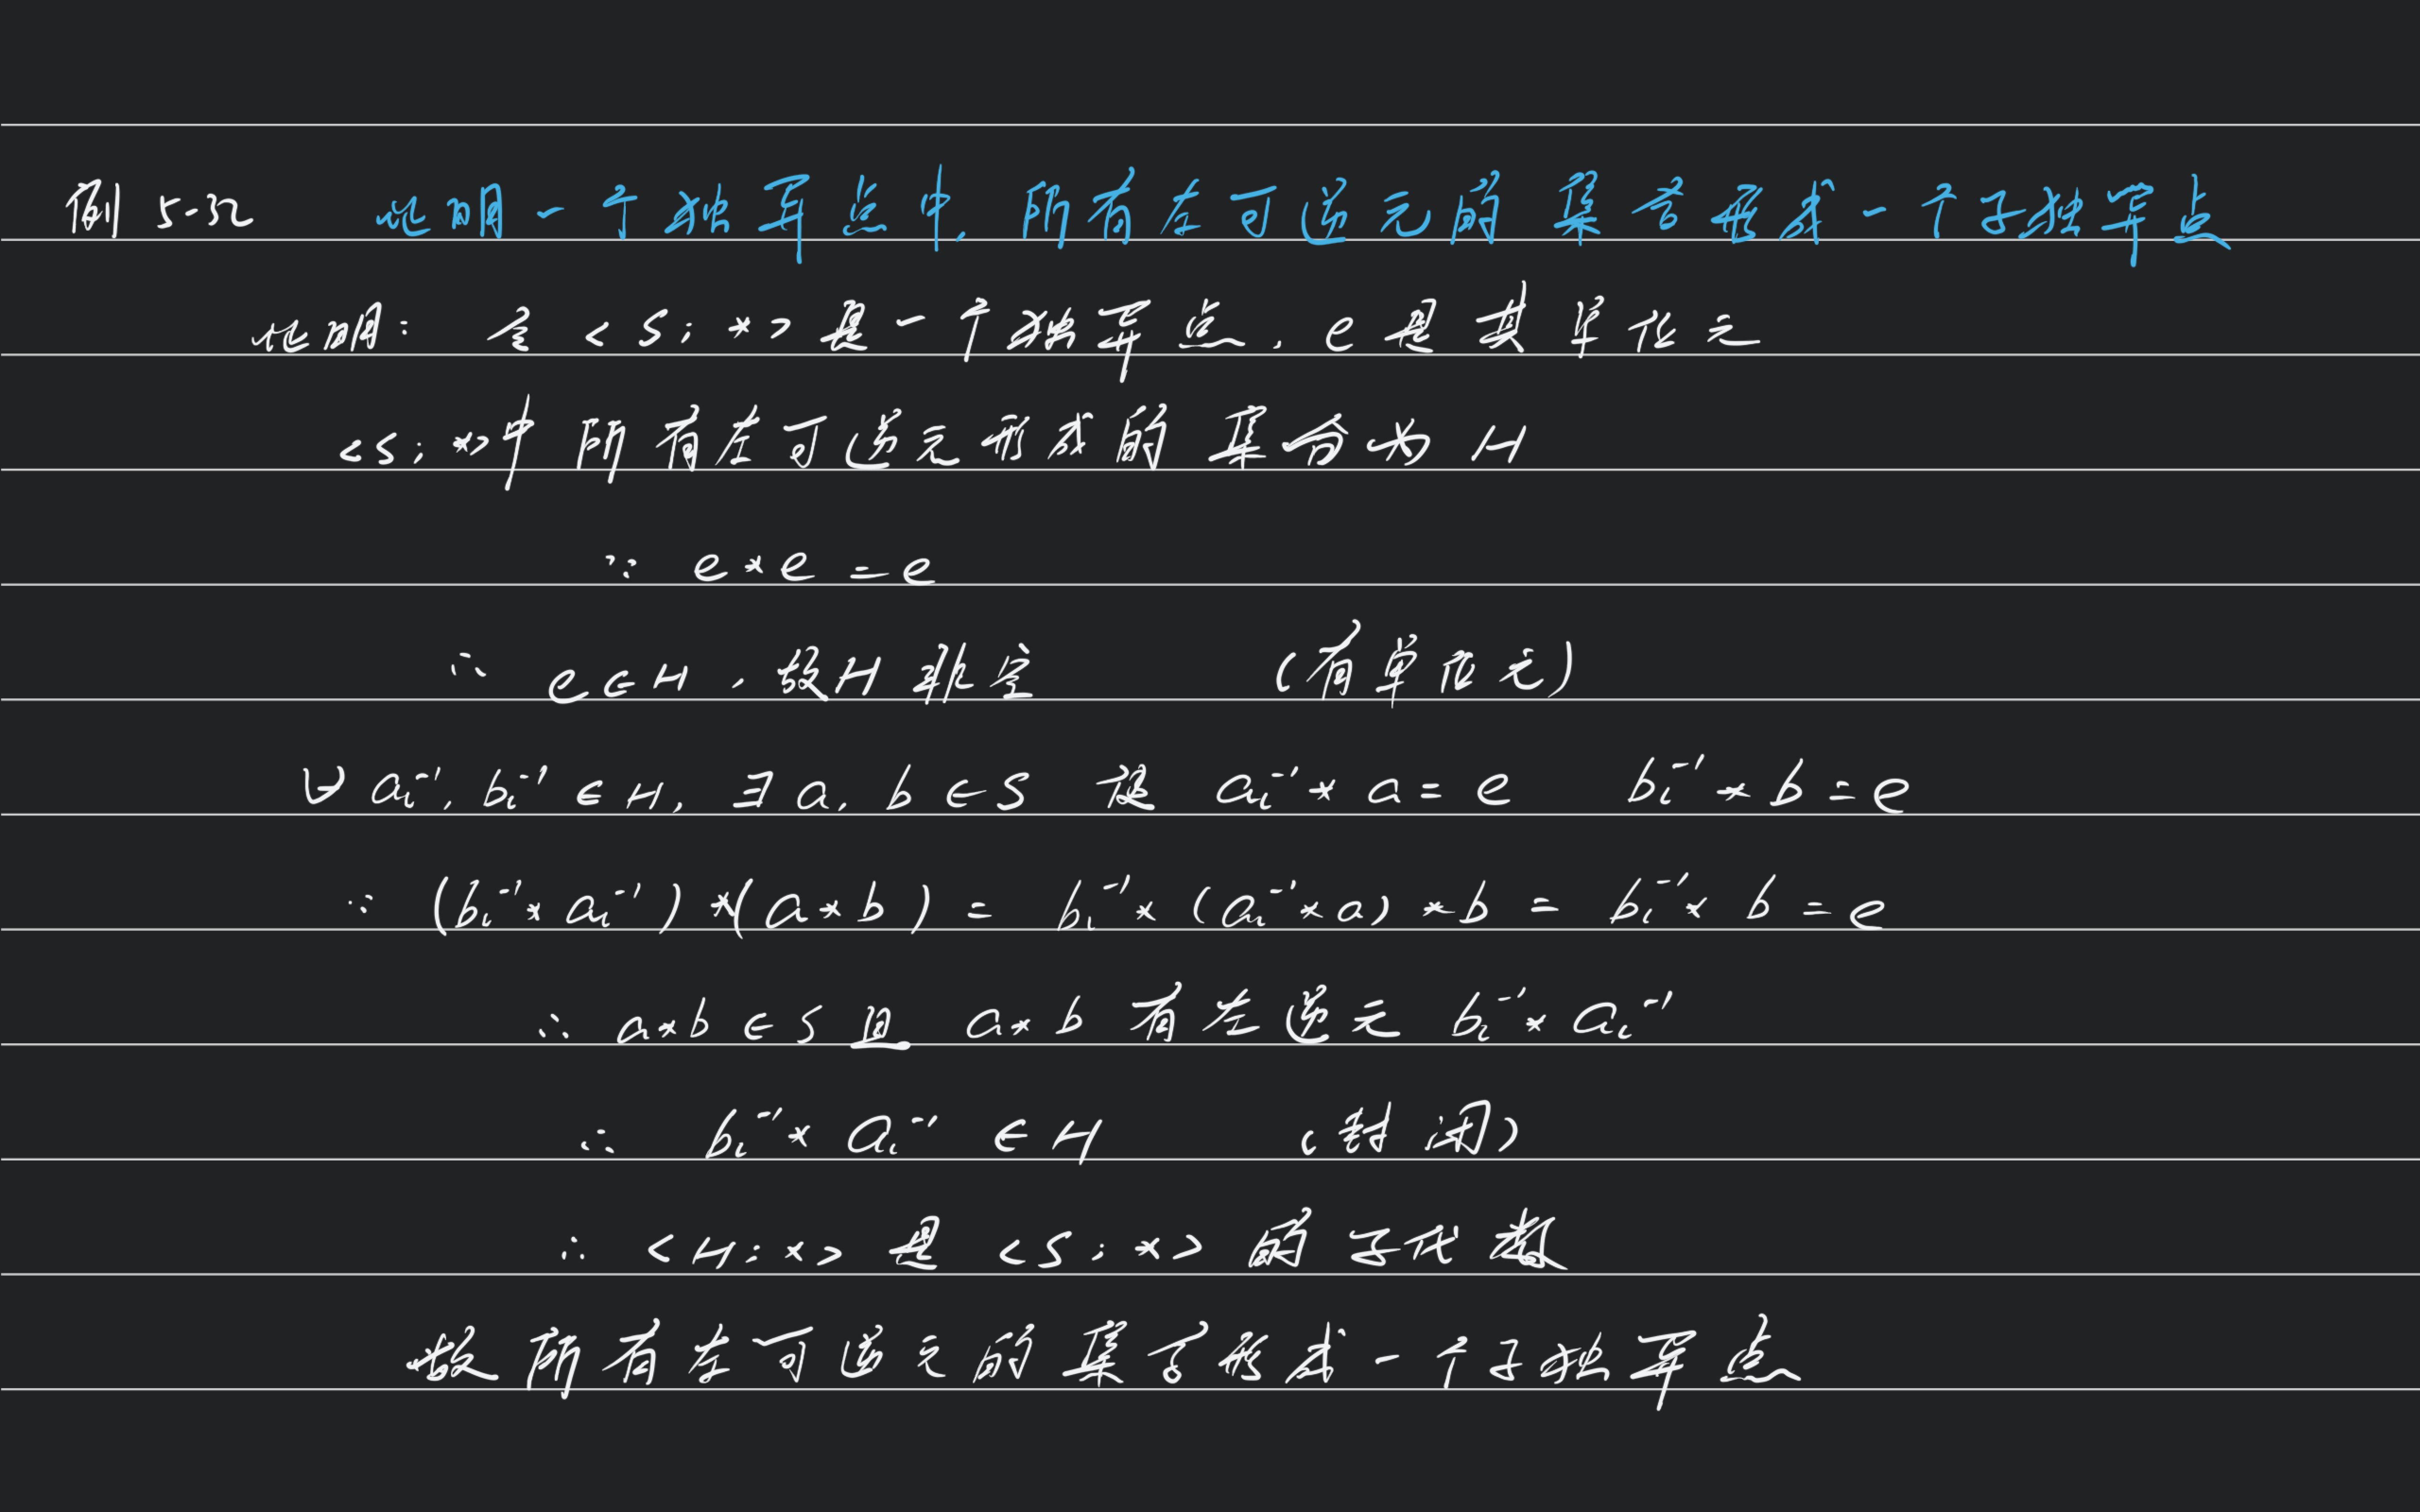 例 5-32 证明一个独异点中,所有左可逆元的集合形成一个子独异点
证明: 令 <S; *> 是一个独异点, e是其单位元
<S; *>中所有左可逆元形成的集合为 H
∵ e * e = e
∴ e ∈ H, 故H非空 (有单位元)
∀ aₗ⁻¹, bₗ⁻¹ ∈ H, ∃ a, b ∈ S 使 aₗ⁻¹ * a = e bₗ⁻¹ * b = e
∵ (bₗ⁻¹ * aₗ⁻¹) * (a * b) = bₗ⁻¹ * (aₗ⁻¹ * a) * b = bₗ⁻¹ * b = e
∴ a * b ∈ S 且 a * b 有左逆元 bₗ⁻¹ * aₗ⁻¹
∴ bₗ⁻¹ * aₗ⁻¹ ∈ H (封闭)
∴ <H; *> 是 <S; *> 的子代数
故所有左可逆元的集合形成一个子独异点